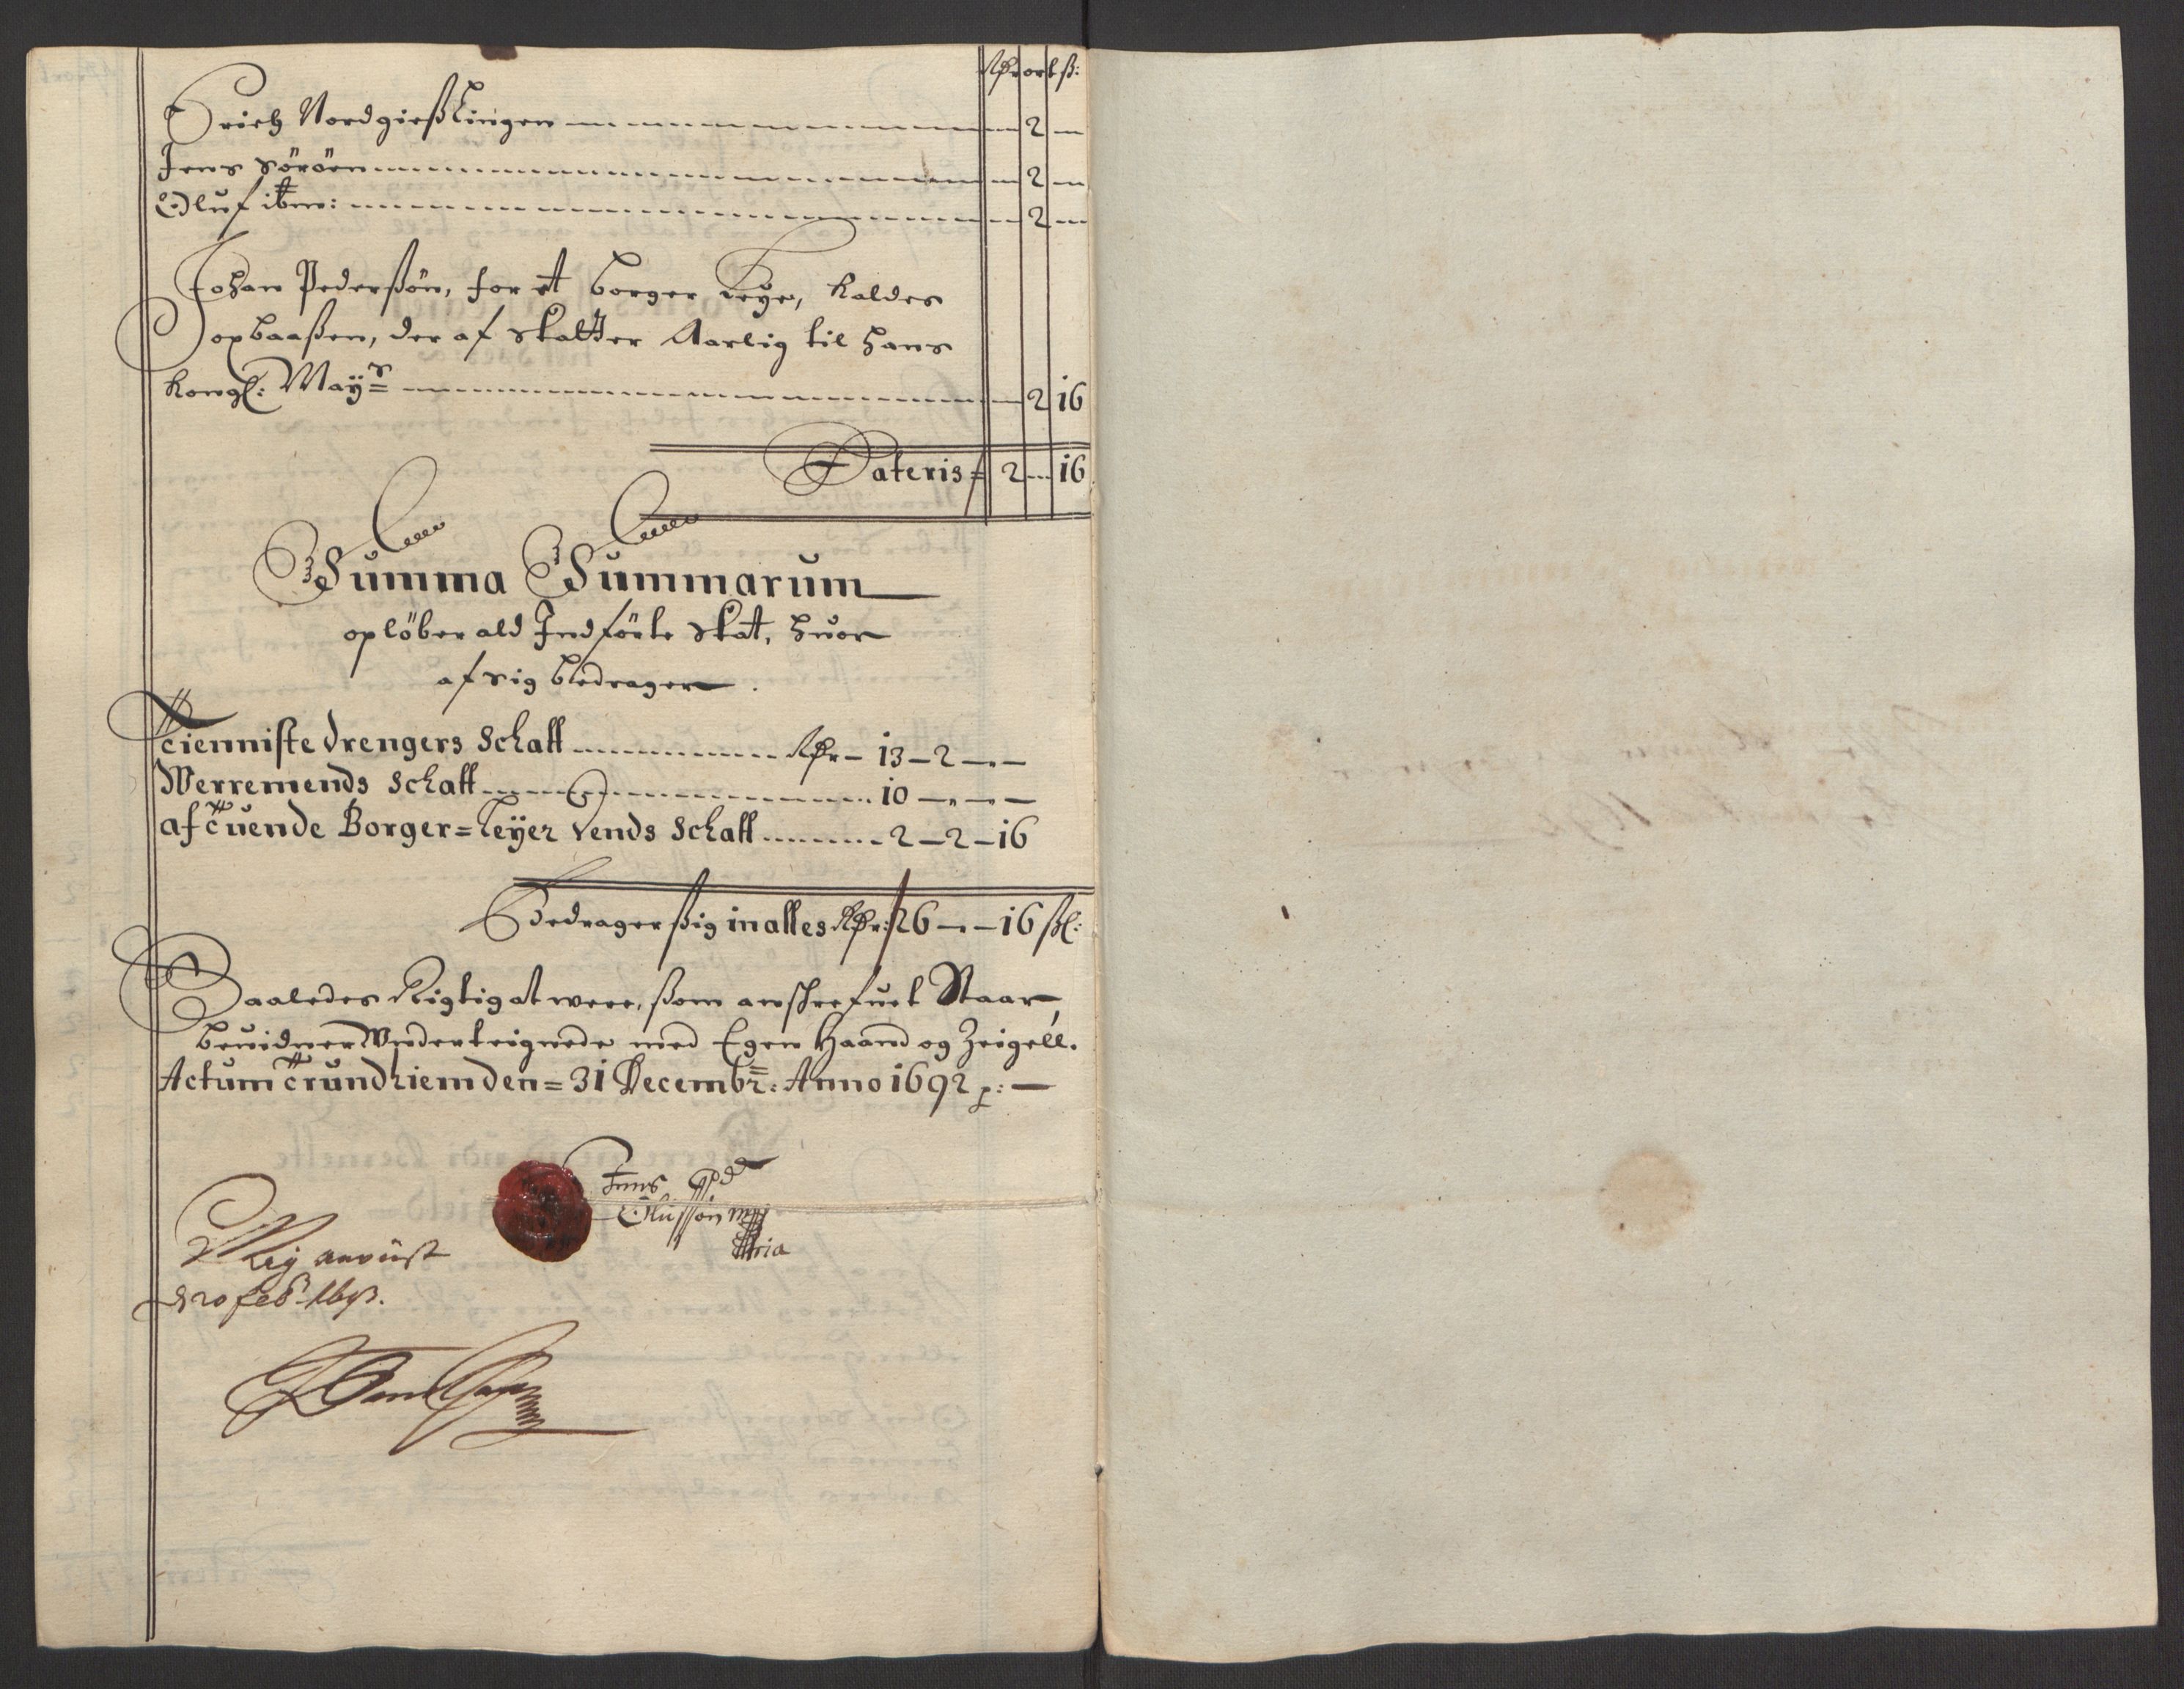 Rdr ort ß:
Erich Nordgießlingen - 2 -
Jens Söröen - 2 -
Oluf ibm: - 2 -
Johan Pederßön, for et borger Leye, kaldes
Jopbaaßen, der af skatter Aarlig til hans
kongl: Mayts - 2 16
Lateris - 2 - 16
Summa Summarum
opløber ald Indförte Skat, huor
af sig bedrager.
Tienniste drengers Schatt Rdr - 13 - 2 - -
Werremends Schatt 10 - - -
af Tuende Borger=Leyer Vends Schatt 2 - 2 - 16
Bedrager ßig in alles Rdr: 26 - - 16 ßl:
Saaledes Rigtig at were, ßom anschrefuet Staar,
beuidner Vnderteignede med Egen Haand og Zeigell.
Actum Trundhiem den = 31 Decembr: Anno 1692 p: -
Jens
Olufsön mpp
tria
d 20 feb 1693.